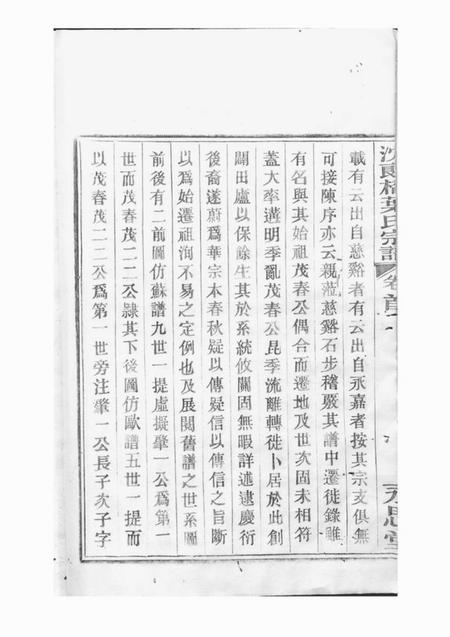 橋葉氏宗譜
卷首
永思堂
載有云出自慈谿者有云出自永嘉者按其宗支俱無
可接陳序亦云親蒞慈谿石步稽覈其譜中遷徙錄雖
有名與其始祖茂春公偶合而遷地及世次固未相符
蓋大率遘明季亂茂春公昆季流離轉徙卜居於此創
闢田廬以保餘生其於系統攸關固無暇詳述逮慶衍
後裔遂蔚爲華宗本春秋疑以傳疑信以傳信之旨斷
以爲始遷祖洵不易之定例也及展閱舊譜之世系圖
前後有二前圖仿蘇譜九世一提虛擬肇一公爲第一
世而茂春茂二二公隷其下後圖仿歐譜五世一提而
以茂春茂二二公爲第一世旁注肇一公長子次子字